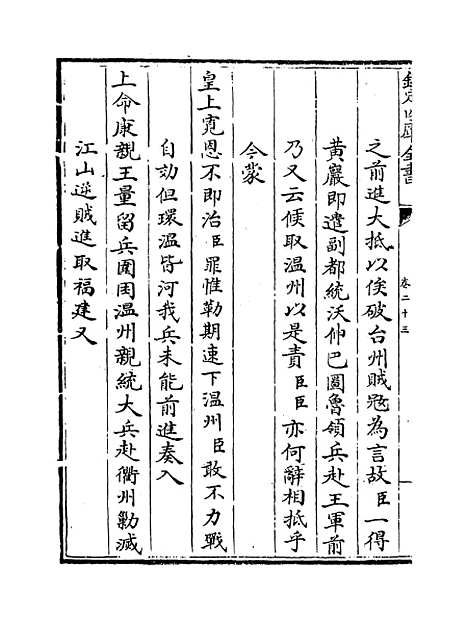 欽定四庫全書
卷二十三
之前進大抵以俟破台州賊寇為言故臣一得
黃巖即遣副都統沃伸巴圖魯領兵赴王軍前
乃又云候取温州以是責臣臣亦何辭相抵乎
今蒙
皇上寛恩不即治臣罪惟勒期速下温州臣敢不力戰
自効但環温皆河我兵未能前進奏入
上命康親王量留兵圍困温州親統大兵赴衢州勦滅
江山逆賊進取福建又